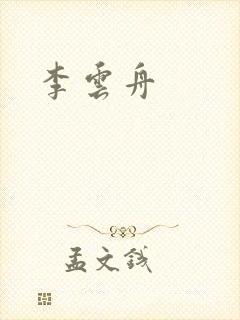 李雲舟
孟文錢